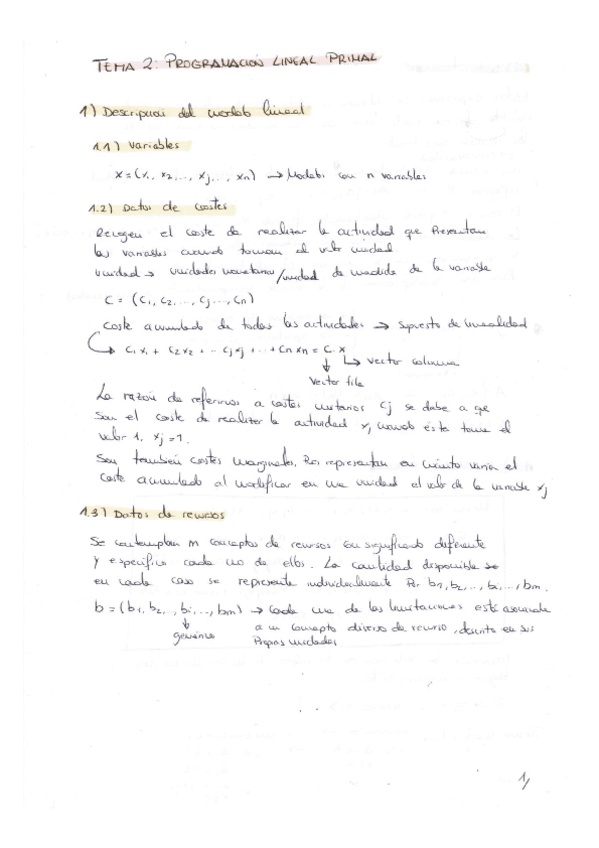 TEMA 2: PROGRAMACIÓN LINEAL PRIMAL
1) Descripción del modelo lineal
1.1) Variables
x = (x1, x2, ..., xj, ..., xn) → Modelos con n variables
1.2) Datos de costes
Recogen el coste de realizar la actividad que Presentan
las variables cuando toman el valor unidad.
unidad → unidades monetarias/unidad de medida de la variable
C = (C1, C2, ..., Cj, ..., Cn)
Coste acumulado de todas las actividades → Supuesto de linealidad
C1 x1 + C2 x2 + .. Cj xj + ... + Cn xn = C · x
↳ vector columna
Vector fila
La razón de referirnos a costes unitarios Cj se debe a que
Son el coste de realizar la actividad xj cuando ésta toma el
valor 1, xj = 1.
Son también costes marginales, Pues representan en cuánto varía el
Coste acumulado al modificar en una unidad el valor de la variable xj
1.3) Datos de recursos
Se contemplan m conceptos de recursos con significado diferente
y específico cada uno de ellos. La cantidad disponible
en cada caso se representa individualmente Por b1, b2, ..., bi, ..., bm.
b = (b1, b2, .., bi, ..., bm) → Cada una de las limitaciones está asociada
genérico
a un concepto diverso de recurso, descrito en sus
Propias unidades
1/